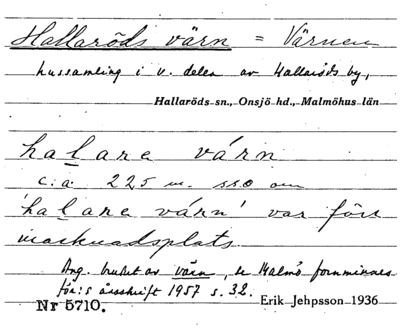 Hallaröds värn = Värnen
hussamling i v. delen av Hallaröds by,
Hallaröds sn., Onsjö hd., Malmöhus län
halare várn
c:a 225 m. sso om
'halare várn' var förr
marknadsplats.
Ang. bruket av värn, se Malmö fornminnes
för:s årsskrift 1957 s. 32.
Nr 5710. Erik Jehpsson 1936